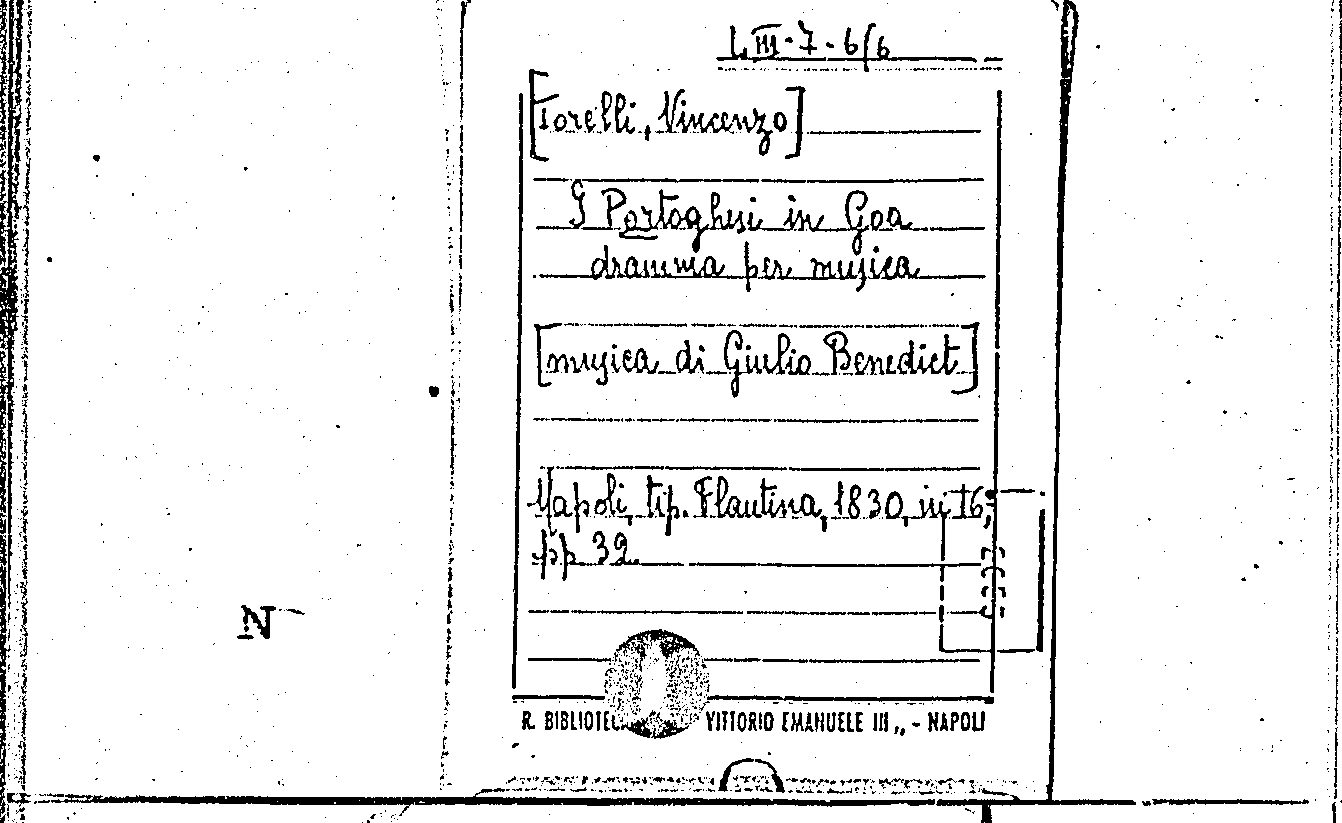 L III - 7 - 6/6
[Torelli, Vincenzo]
I Portoghesi in Goa
dramma per musica
[musica di Giulio Benedict]
Napoli, tip. Flautina, 1830, in 16;
pp 32.
N
R. VITTORIO EMANUELE III „ - NAPOLI